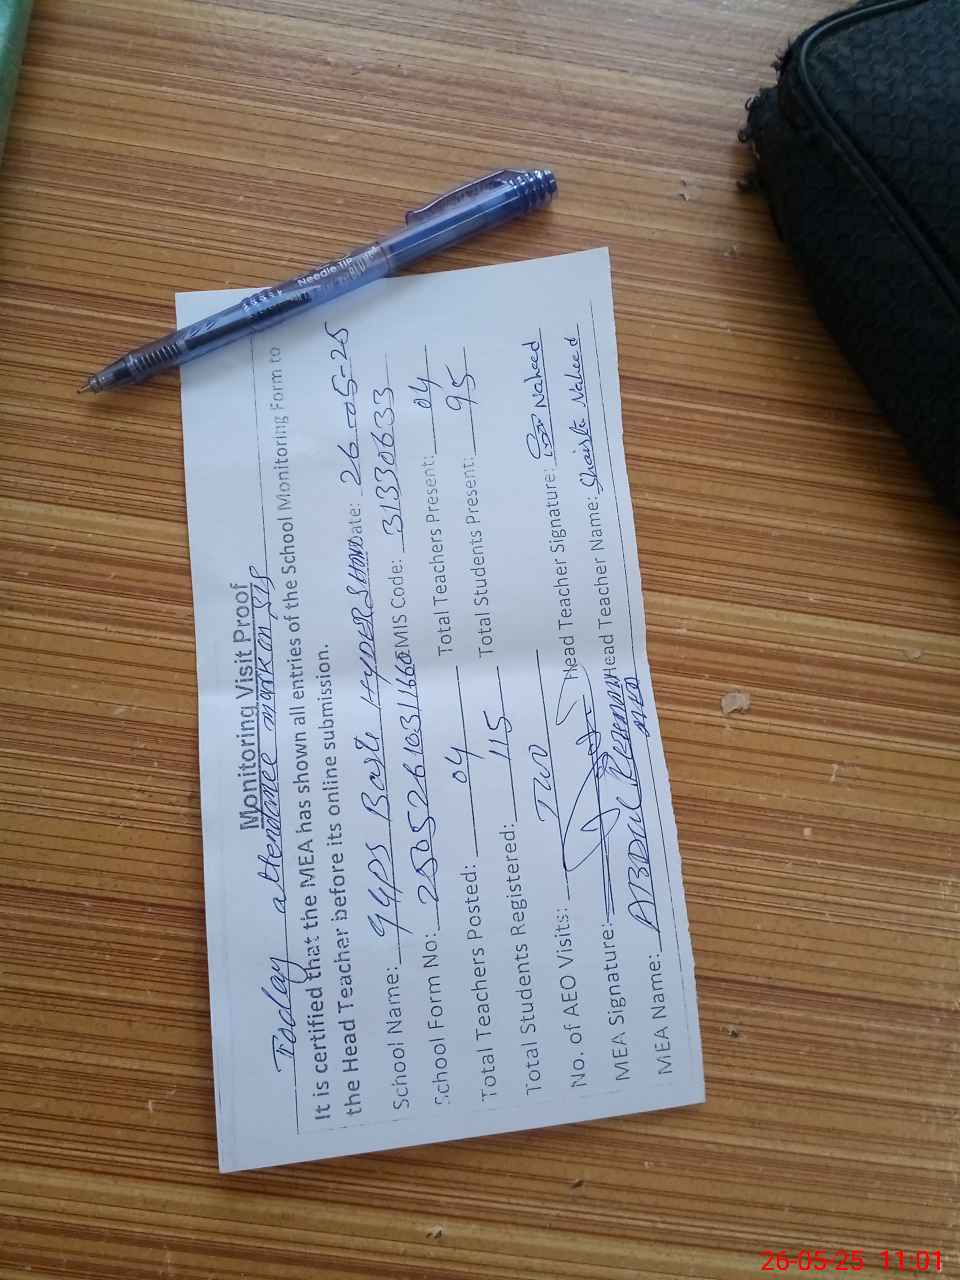 Monitoring Visit Proof
Today attendance mark on SIS
It is certified that the MEA has shown all entries of the School Monitoring Form to
the Head Teacher before its online submission.
School Name: GGPS Basti HYDER SHAH Date: 26-05-25
School Form No: EMIS Code: 31330633
Total Teachers Posted: 04 Total Teachers Present: 04
Total Students Registered: 115 Total Students Present: 95
No. of AEO Visits: Two
Head Teacher Signature: Naheed
MEA Signature: Head Teacher Name: Shaista Naheed
MEA Name: ABDUL REHMAN
Needle Tip
26-05-25 11:01